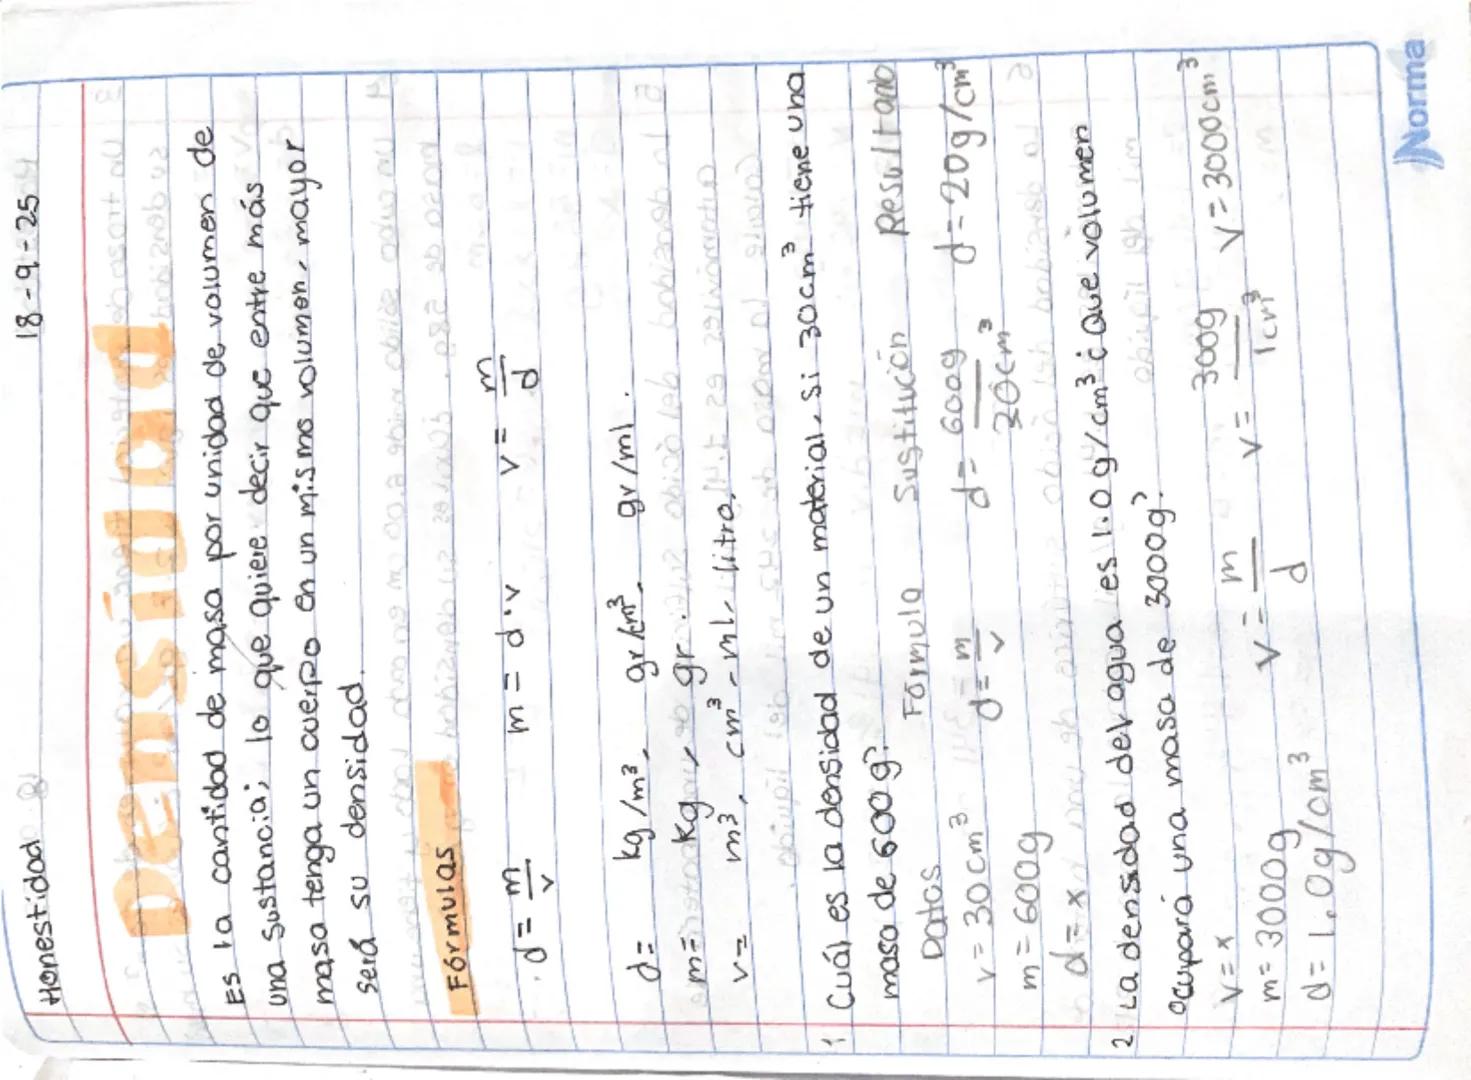 Honestidad 18-9-25
Densidad
Es la cantidad de masa por unidad de volumen de
una sustancia; lo que quiere decir que entre más
masa tenga un cuerpo en un mismo volumen, mayor
será su densidad.
Fórmulas
d = m/v m = d·v v = m/d
d = kg/m³, gr/cm³, gr/ml.
m = kg, gr.
v = m³, cm³ - ml, litro,
1 Cuál es la densidad de un material, si 30cm³ tiene una
masa de 600g?
Datos Fórmula Sustitución Resultado
v = 30cm³ d = m/v d = 600g/30cm³ d = 20g/cm³
m = 600g
d = x
2 La densidad del agua es 1.0g/cm³ ¿Que volumen
ocupará una masa de 3000g?
v = x v = m/d v = 300g/1cm³ v = 3000cm³
m = 3000g
d = 1.0g/cm³
Norma